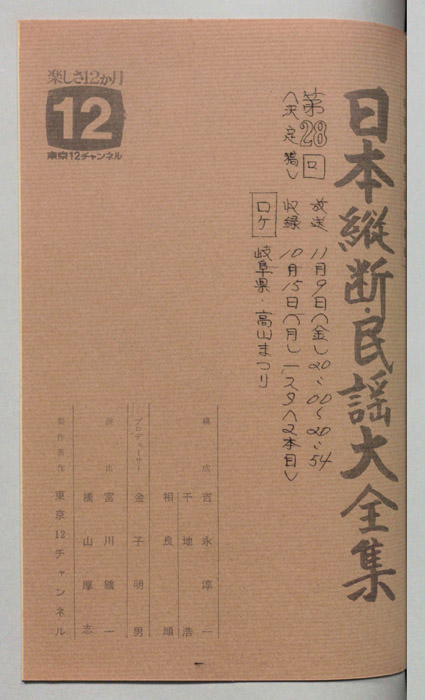 日本縦断・民謡大全集
第28回
(決定稿)
放送 11月9日(金) 20:00~20:54
収録 10月15日(月) 1スタ(2本目)
ロケ 岐阜県・高山まつり
楽しさ12か月
12
東京12チャンネル
構成 吉永淳一
千地浩
相良順
プロデューサー 金子明男
演出 宮川鑛一
橋山厚志
製作著作 東京12チャンネル